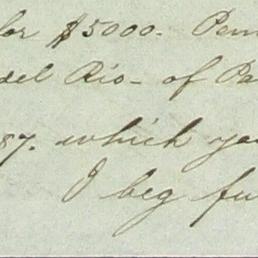 for $5000. Pam
del Rio - of Pa
87. which you
I beg fu